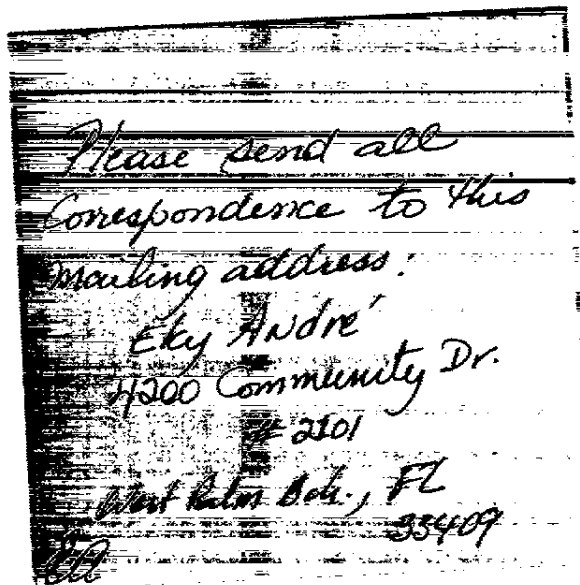 Please send all
Correspondence to this
mailing address:
Eky André
4200 Community Dr.
# 2101
West Palm Bch., FL
33409